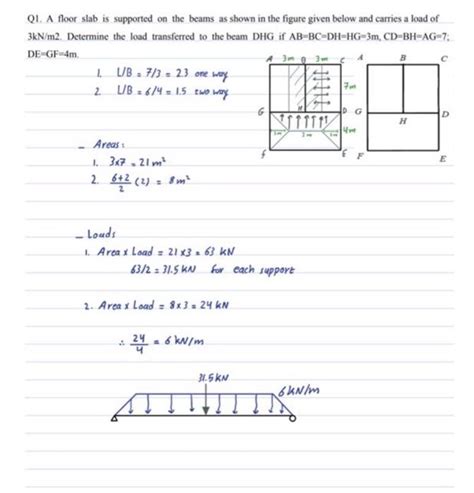 Q1. A floor slab is supported on the beams as shown in the figure given below and carries a load of
3kN/m2. Determine the load transferred to the beam DHG if AB=BC=DH=HG=3m, CD=BH=AG=7;
DE=GF=4m.
A 3m B 3m C A B C
1. L/B = 7/3 = 2.3 one way
2. L/B = 6/4 = 1.5 two way
7m
G H D G H D
4m
2m 2m 2m
F E F E
- Areas:
1. 3x7 = 21 m²
2. 6+2/2 (2) = 8 m²
- Loads
1. Area x Load = 21 x3 = 63 kN
63/2 = 31.5 kN for each support
2. Area x Load = 8x3 = 24 kN
∴ 24/4 = 6 kN/m
31.5 KN
6 kN/m